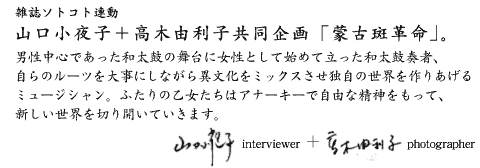 雑誌ソトコト連動
山口小夜子＋高木由利子共同企画「蒙古斑革命」。
男性中心であった和太鼓の舞台に女性として始めて立った和太鼓奏者、
自らのルーツを大事にしながら異文化をミックスさせ独自の世界を作りあげる
ミュージシャン。ふたりの乙女たちはアナーキーで自由な精神をもって、
新しい世界を切り開いていきます。
山口小夜子 interviewer ＋ 高木由利子 photographer